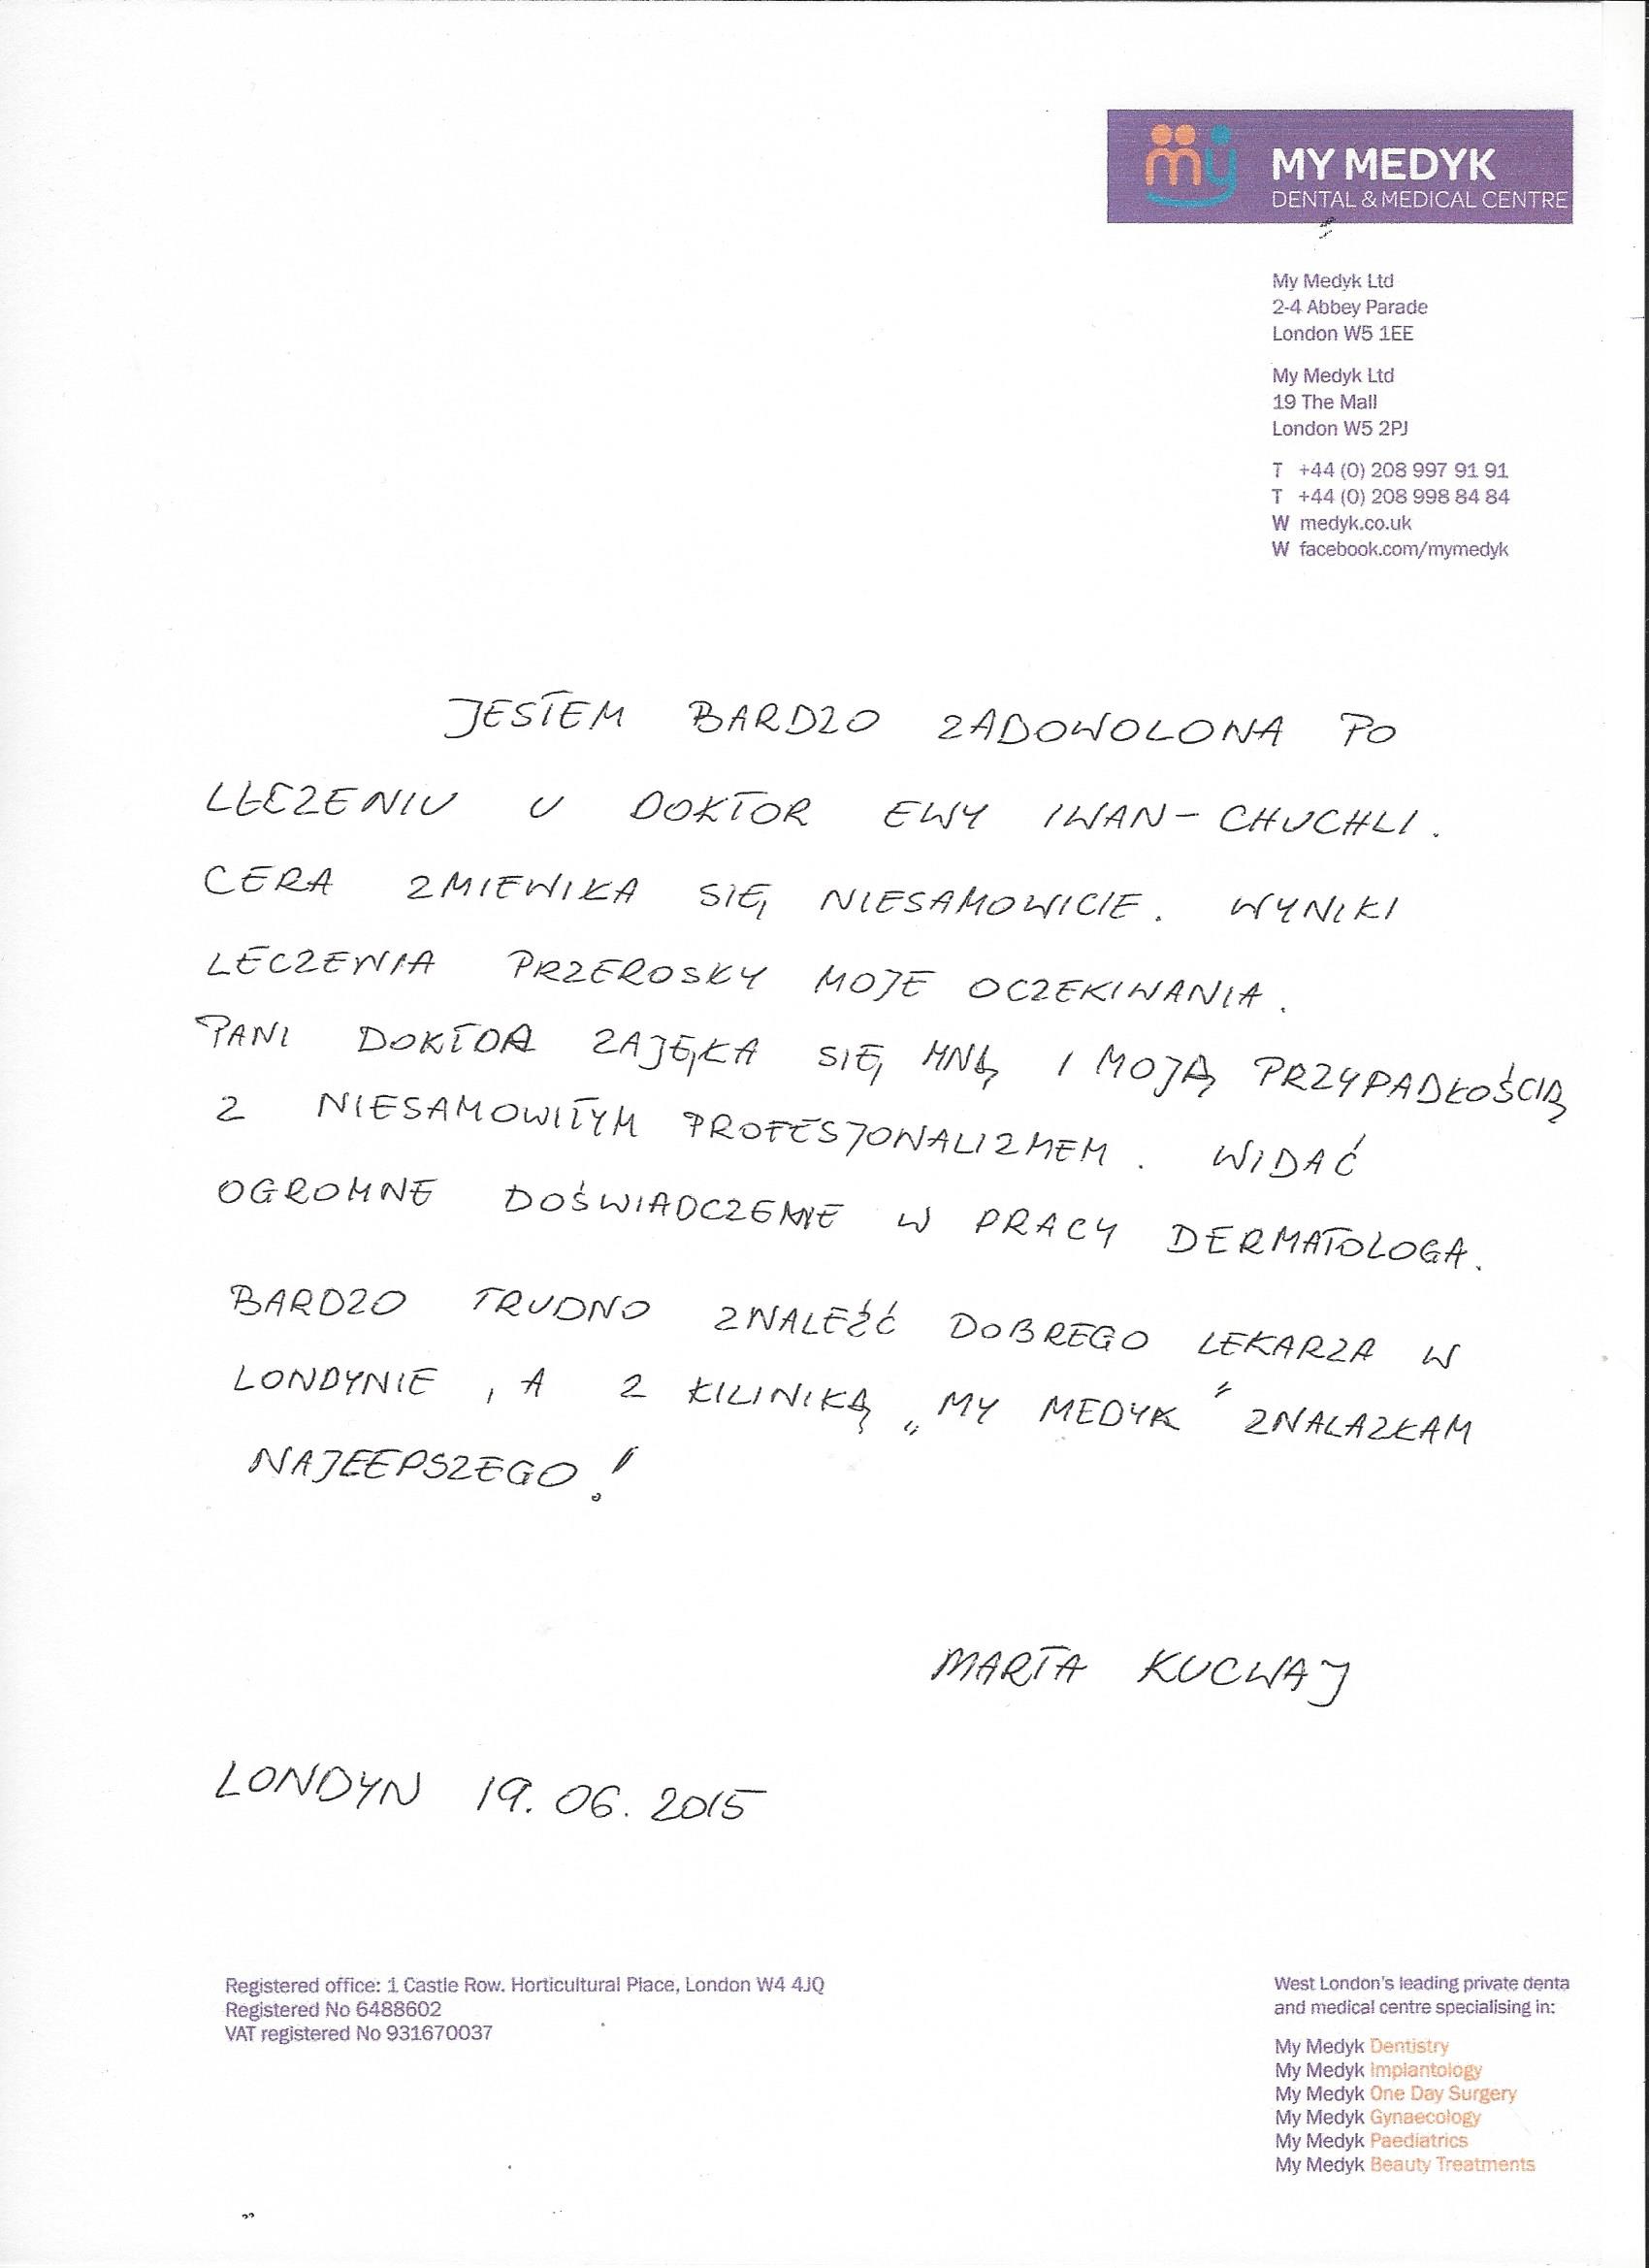 my MY MEDYK
DENTAL & MEDICAL CENTRE
My Medyk Ltd
2-4 Abbey Parade
London W5 1EE
My Medyk Ltd
19 The Mall
London W5 2PJ
T +44 (0) 208 997 91 91
T +44 (0) 208 998 84 84
W medyk.co.uk
W facebook.com/mymedyk
JESTEM BARDZO ZADOWOLONA PO
LECZENIU U DOKTOR EWY IWAN-CHUCHLI.
CERA ZMIENIŁA SIĘ NIESAMOWICIE. WYNIKI
LECZENIA PRZEROSŁY MOJE OCZEKIWANIA.
PANI DOKTOR ZAJĘŁA SIĘ MNĄ I MOJĄ PRZYPADŁOŚCIĄ
Z NIESAMOWITYM PROFESJONALIZMEM. WIDAĆ
OGROMNE DOŚWIADCZENIE W PRACY DERMATOLOGA.
BARDZO TRUDNO ZNALEŹĆ DOBREGO LEKARZA W
LONDYNIE, A Z KILINIKĄ „MY MEDYK" ZNALAZŁAM
NAJLEPSZEGO!
MARTA
LONDYN 19.06.2015
Registered office: 1 Castle Row. Horticultural Place, London W4 4JQ
Registered No 6488602
VAT registered No 931670037
West London's leading private denta
and medical centre specialising in:
My Medyk Dentistry
My Medyk Implantology
My Medyk One Day Surgery
My Medyk Gynaecology
My Medyk Paediatrics
My Medyk Beauty Treatments